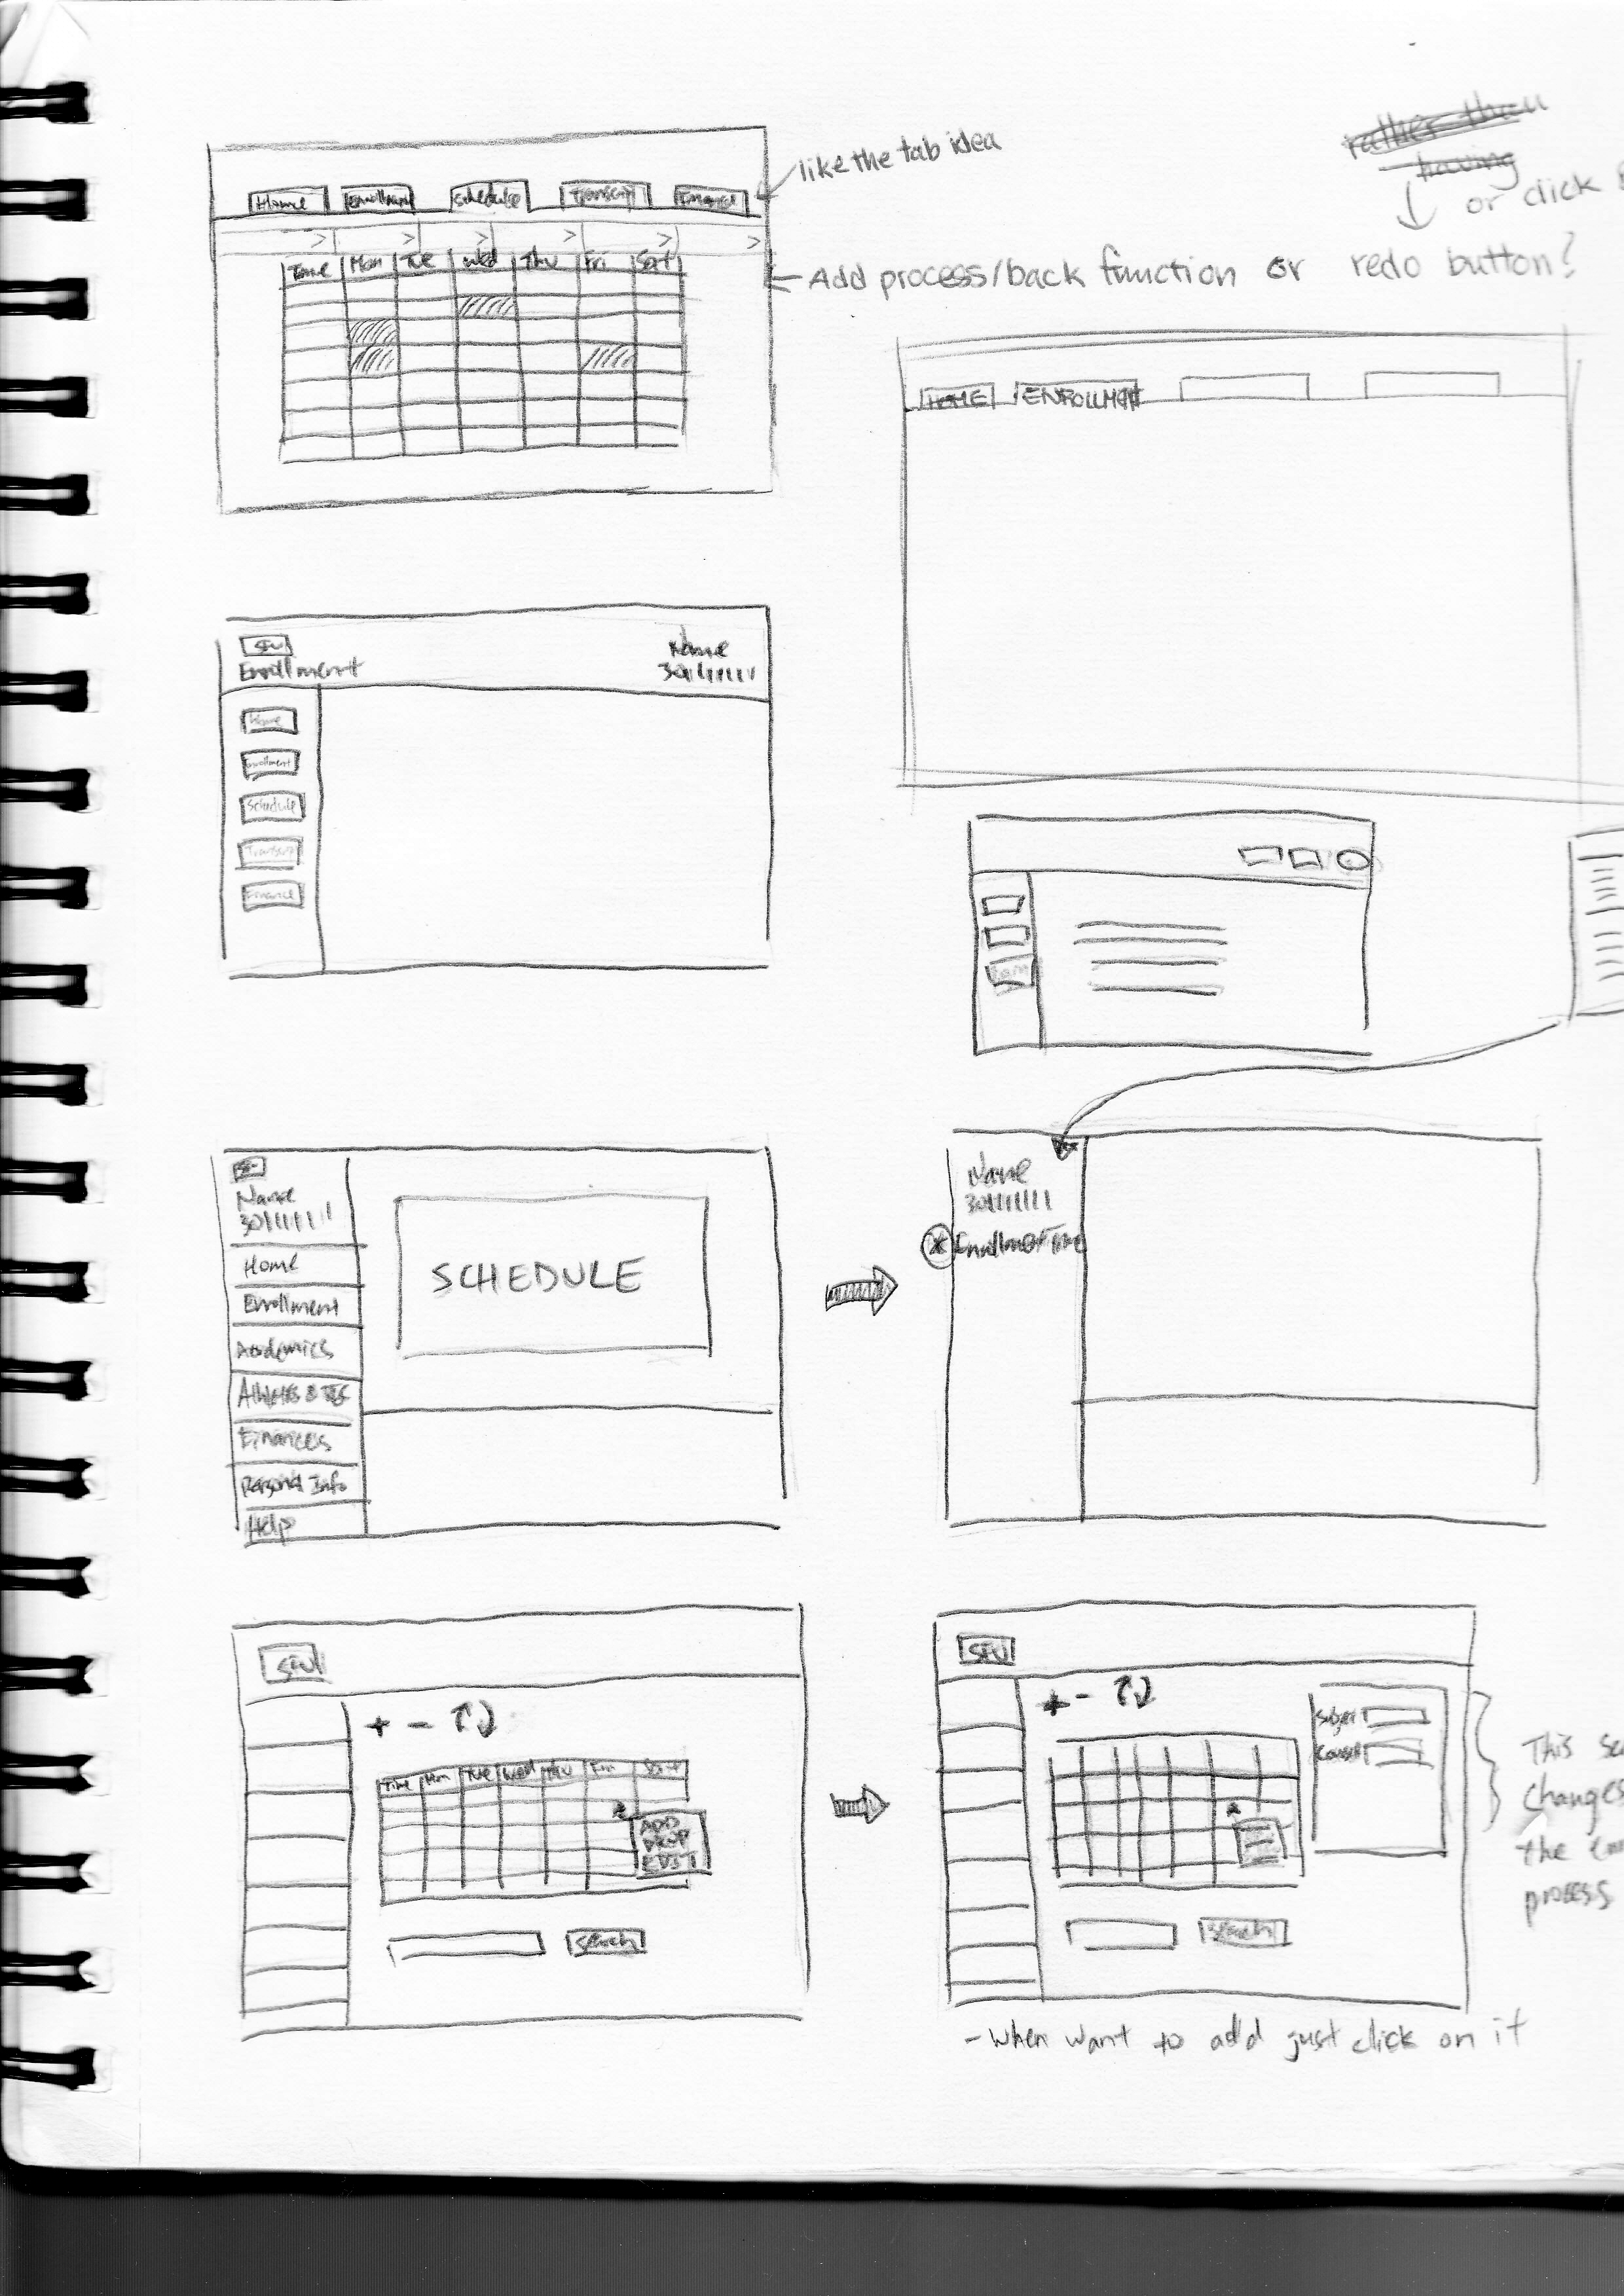 like the tab idea
rather than
having
or click
Home Enrollment Schedule Transcript Finance
Time Mon Tue Wed Thu Fri Sat
Add process/back function or redo button?
HOME ENROLLMENT
SFU
Enrollment
Name
301111111
Home
Enrollment
Schedule
Transcript
Finance
Name
301111111
Home
Enrollment
Academics
Finances
Personal Info
Help
SCHEDULE
Name
301111111
Enrollment Time
SFU
+ -
Time Mon Tue Wed Thu Fri Sat
ADD
DROP
EDIT
Search
SFU
+ -
Subject
Course
Search
This
changes
the
process
- When want to add just click on it